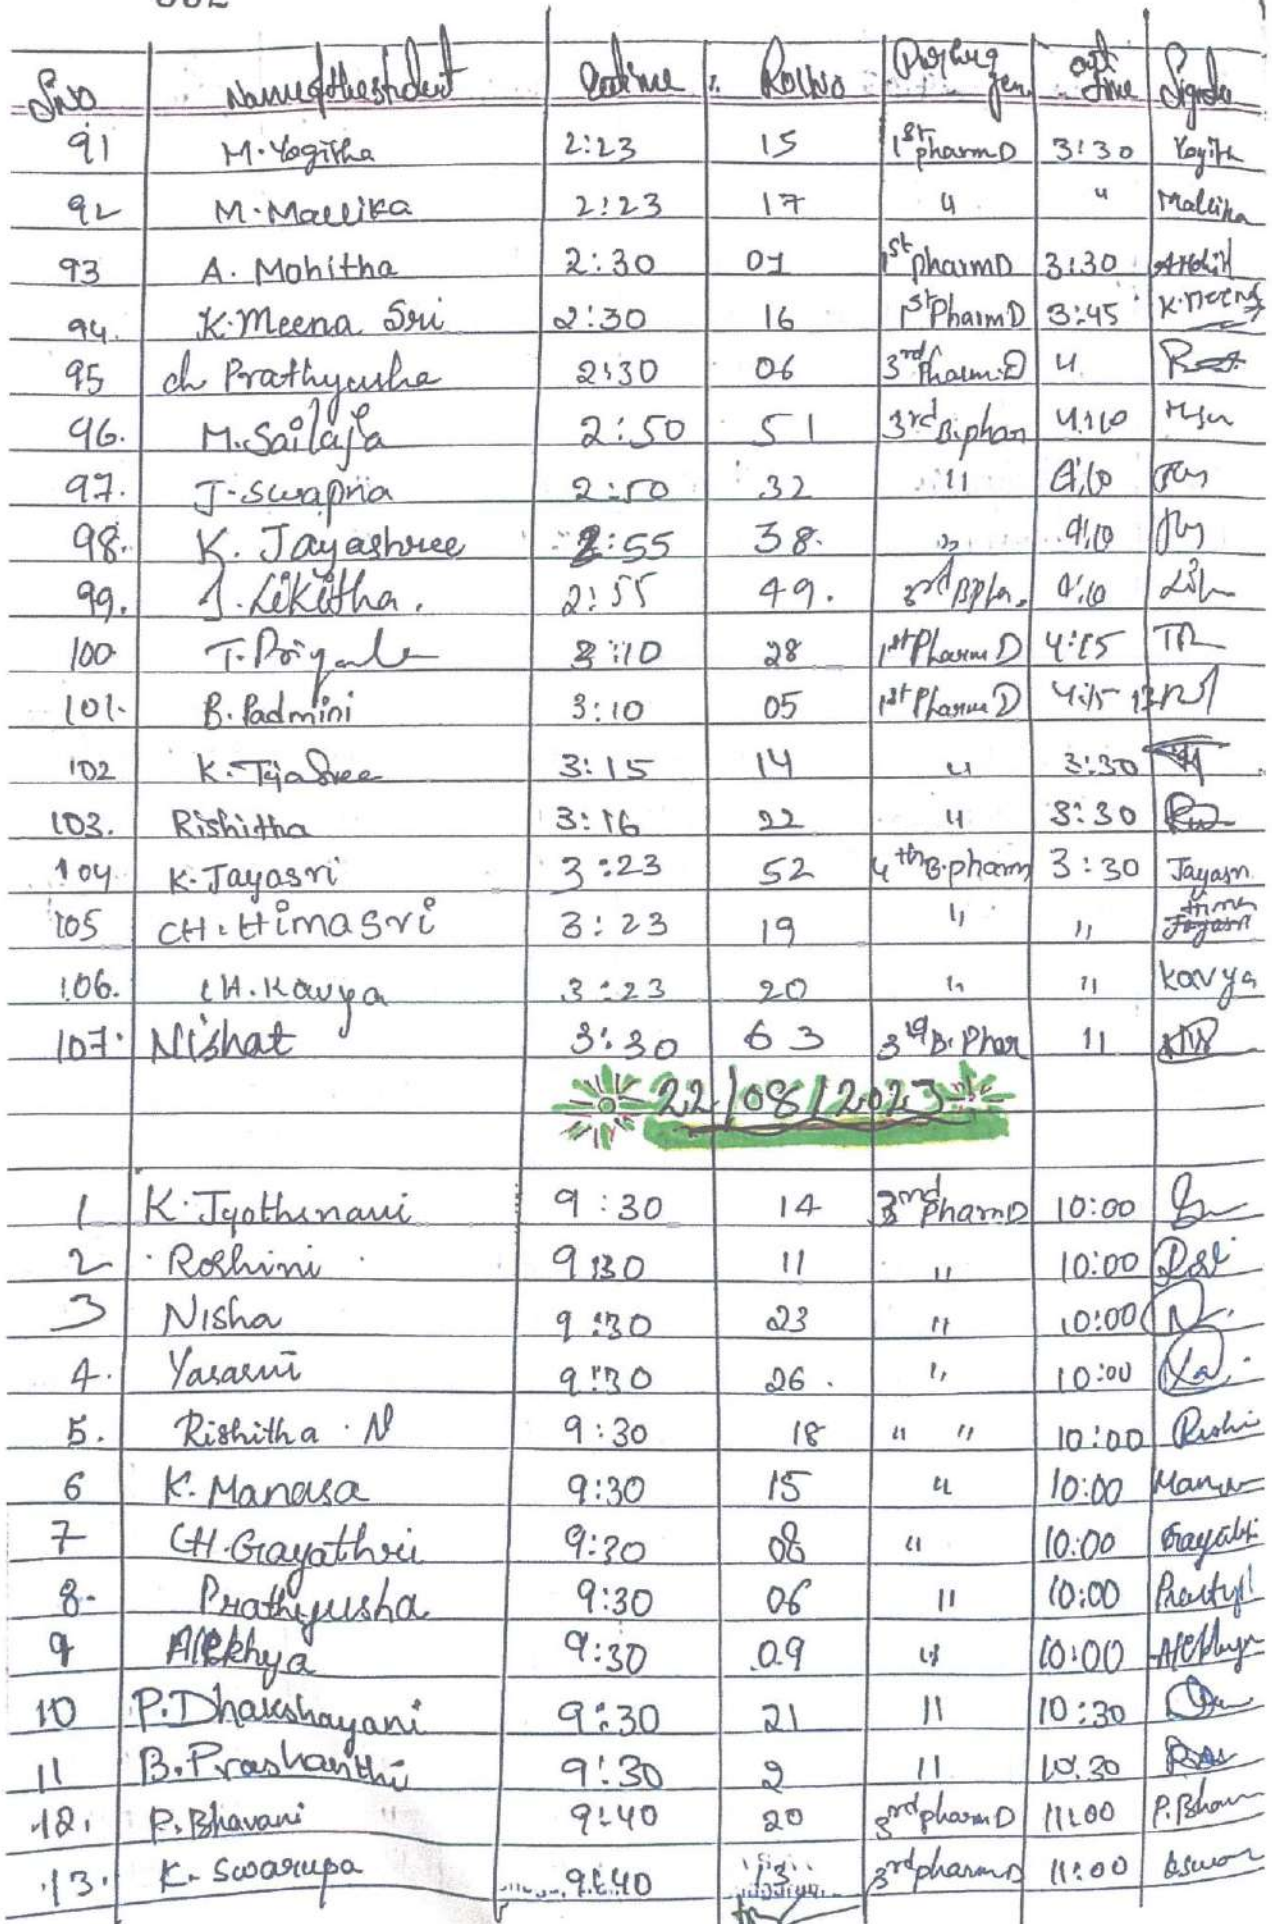 S.NO Name of the student Roll No out time
91 M. Yogitha 2:23 15 1st pharm D 3:30 Yogith
92 M. Mallika 2:23 17 " " Mallika
93 A. Mohitha 2:30 01 1st pharm D 3:30
94. K. Meena Sri 2:30 16 1st Pharm D 3:45 K. Meena
95 ch Prathyusha 2:30 06 3rd Pharm.D "
96. M. Sailaja 2:50 51 3rd B.phar 4:10
97. J. Swapna 2:50 32 " 4:10
98. K. Jayashree 2:55 38. " 4:10
99. J. Likitha. 2:55 49. 3rd B Pha. 4:10
100 3:10 28 1st Pharm D 4:15
101. B. Padmini 3:10 05 1st Pharm D 4:15
102 K. TejaSree 3:15 14 " 3:30
103. Rishitha 3:16 22 " 3:30
104 K. Jayasri 3:23 52 4th B.pharm 3:30 Jayasri
105 CH. Himasri 3:23 19 " " Hima
106. CH. Kavya 3:23 20 " " Kavya
107. Nishat 3:30 63 3rd B. Phar "
22/08/2023
1 K. 9:30 14 3nd pharm D 10:00
2 Roshini 9:30 11 " 10:00
3 Nisha 9:30 23 " 10:00
4. Yasasvi 9:30 26. " 10:00 Ya.
5. Rishitha. N 9:30 18 " " 10:00 Rishi
6 K. Manasa 9:30 15 " 10:00 Manasa
7 CH. Gayathri 9:30 08 " 10:00 Gayatri
8. Prathyusha 9:30 06 " 10:00
9 Alekhya 9:30 09 " 10:00 Alekhya
10 P. Dhakshayani 9:30 21 " 10:30
11 B. Prashanthi 9:30 2 " 10.30
12. P. Bhavani 9:40 20 3rd pharm D 11:00 P. Bhav
13. K. Swarupa 9:40 3 3rd pharm D 11:00